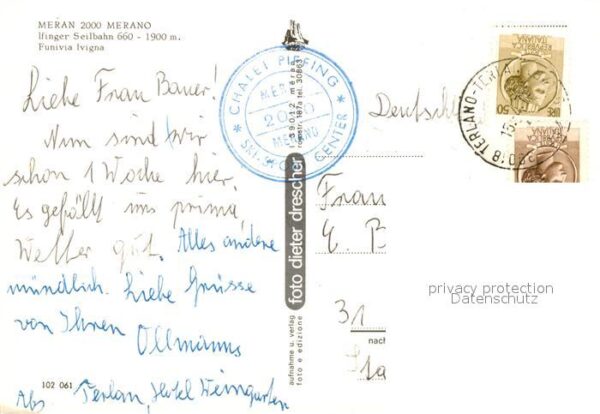 MERAN 2000 MERANO
Ifinger Seilbahn 660 - 1900 m.
Funivia Ivigna
Liebe Frau Bauer!
Nun sind wir
schon 1 Woche hier.
Es gefällt uns prima,
Wetter gut. Alles andere
mündlich. Liebe Grüsse
von Ihnen Ollmanns
102 061
Abs Terlan, Hotel Weingarten
CHALET PIFFING
MERAN
2000
MERANO
SKI-SPORT CENTER
39012 meran
registr. 187a tel. 30863
foto dieter drescher
aufnahme u. verlag
foto e edizione
Deutschl
Frau
E B
31
nach
Sta
REPVBBLICA
ITALIANA
LIRE 50
TERLANO-TERLA
privacy protection
Datenschutz